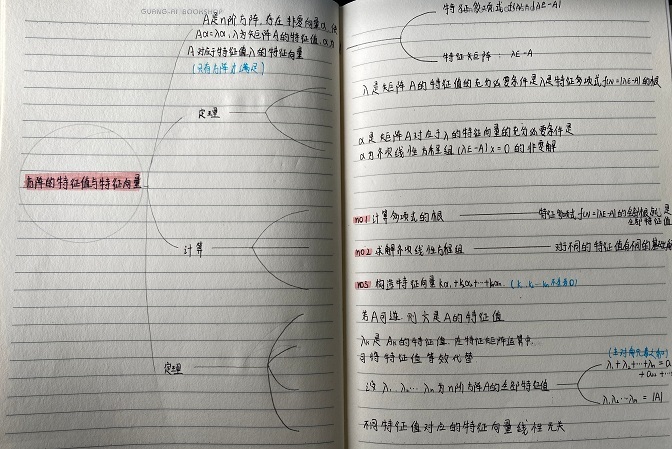 GUANG-AI BOOKSHOP
A是n阶方阵,存在非零向量α,使
Aα=λα,λ为矩阵A的特征值,α为
A对应于特征值λ的特征向量
(只有方阵才满足)
定理
方阵的特征值与特征向量
计算
定理
特征多项式:f(λ)=|λE-A|
特征矩阵: λE-A
λ是矩阵A的特征值的充分必要条件是λ是特征多项式f(λ)=|λE-A|的根
α是矩阵A对应于λ的特征向量的充分必要条件是
α为齐次线性方程组(λE-A)x=0的非零解
no1 计算多项式的根 特征多项式f(λ)=|λE-A|的全部根就是
全部特征值
no2 求解齐次线性方程组 对于不同的特征值有不同的基础
no3 构造特征向量k₁α₁+k₂α₂+…+
若A可逆,则 是A的特征值
的特征值.在特征矩阵运算中,
可将特征值等效代替
(主对角元素之和)
λ₁+λ₂+…+λn=a
+a₂₂+…
设λ₁,λ₂…λn为n阶方阵A的全部特征值
λ₁λ₂…λn=|A|
不同特征值对应的特征向量线性无关